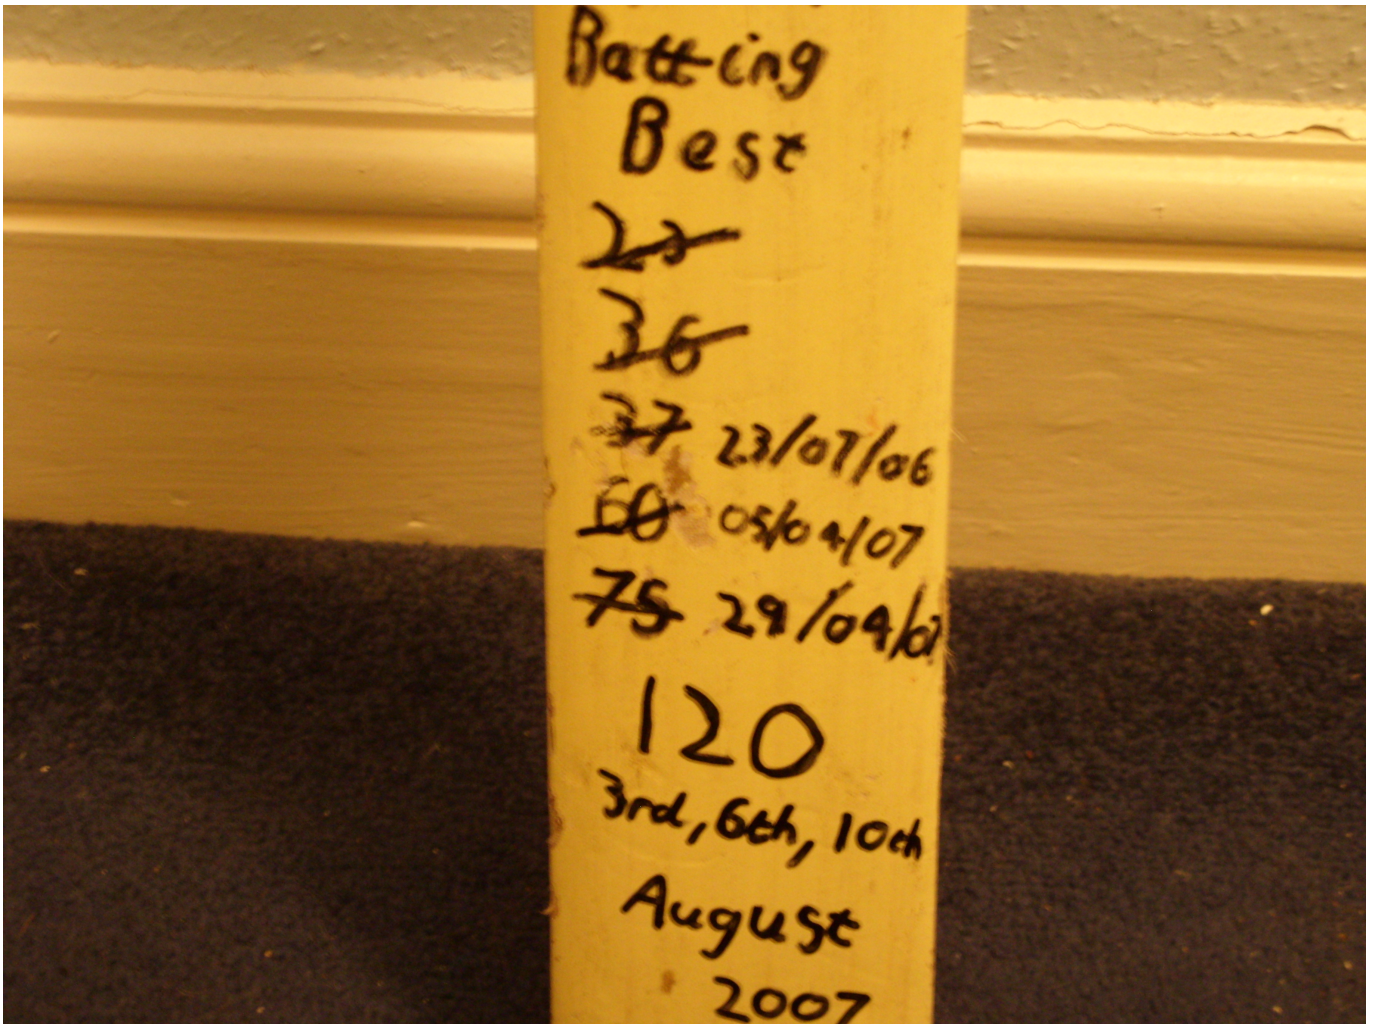 Batting
Best
23
36
37 23/07/06
60 05/04/07
75 29/04/07
120
3rd, 6th, 10th
August
2007